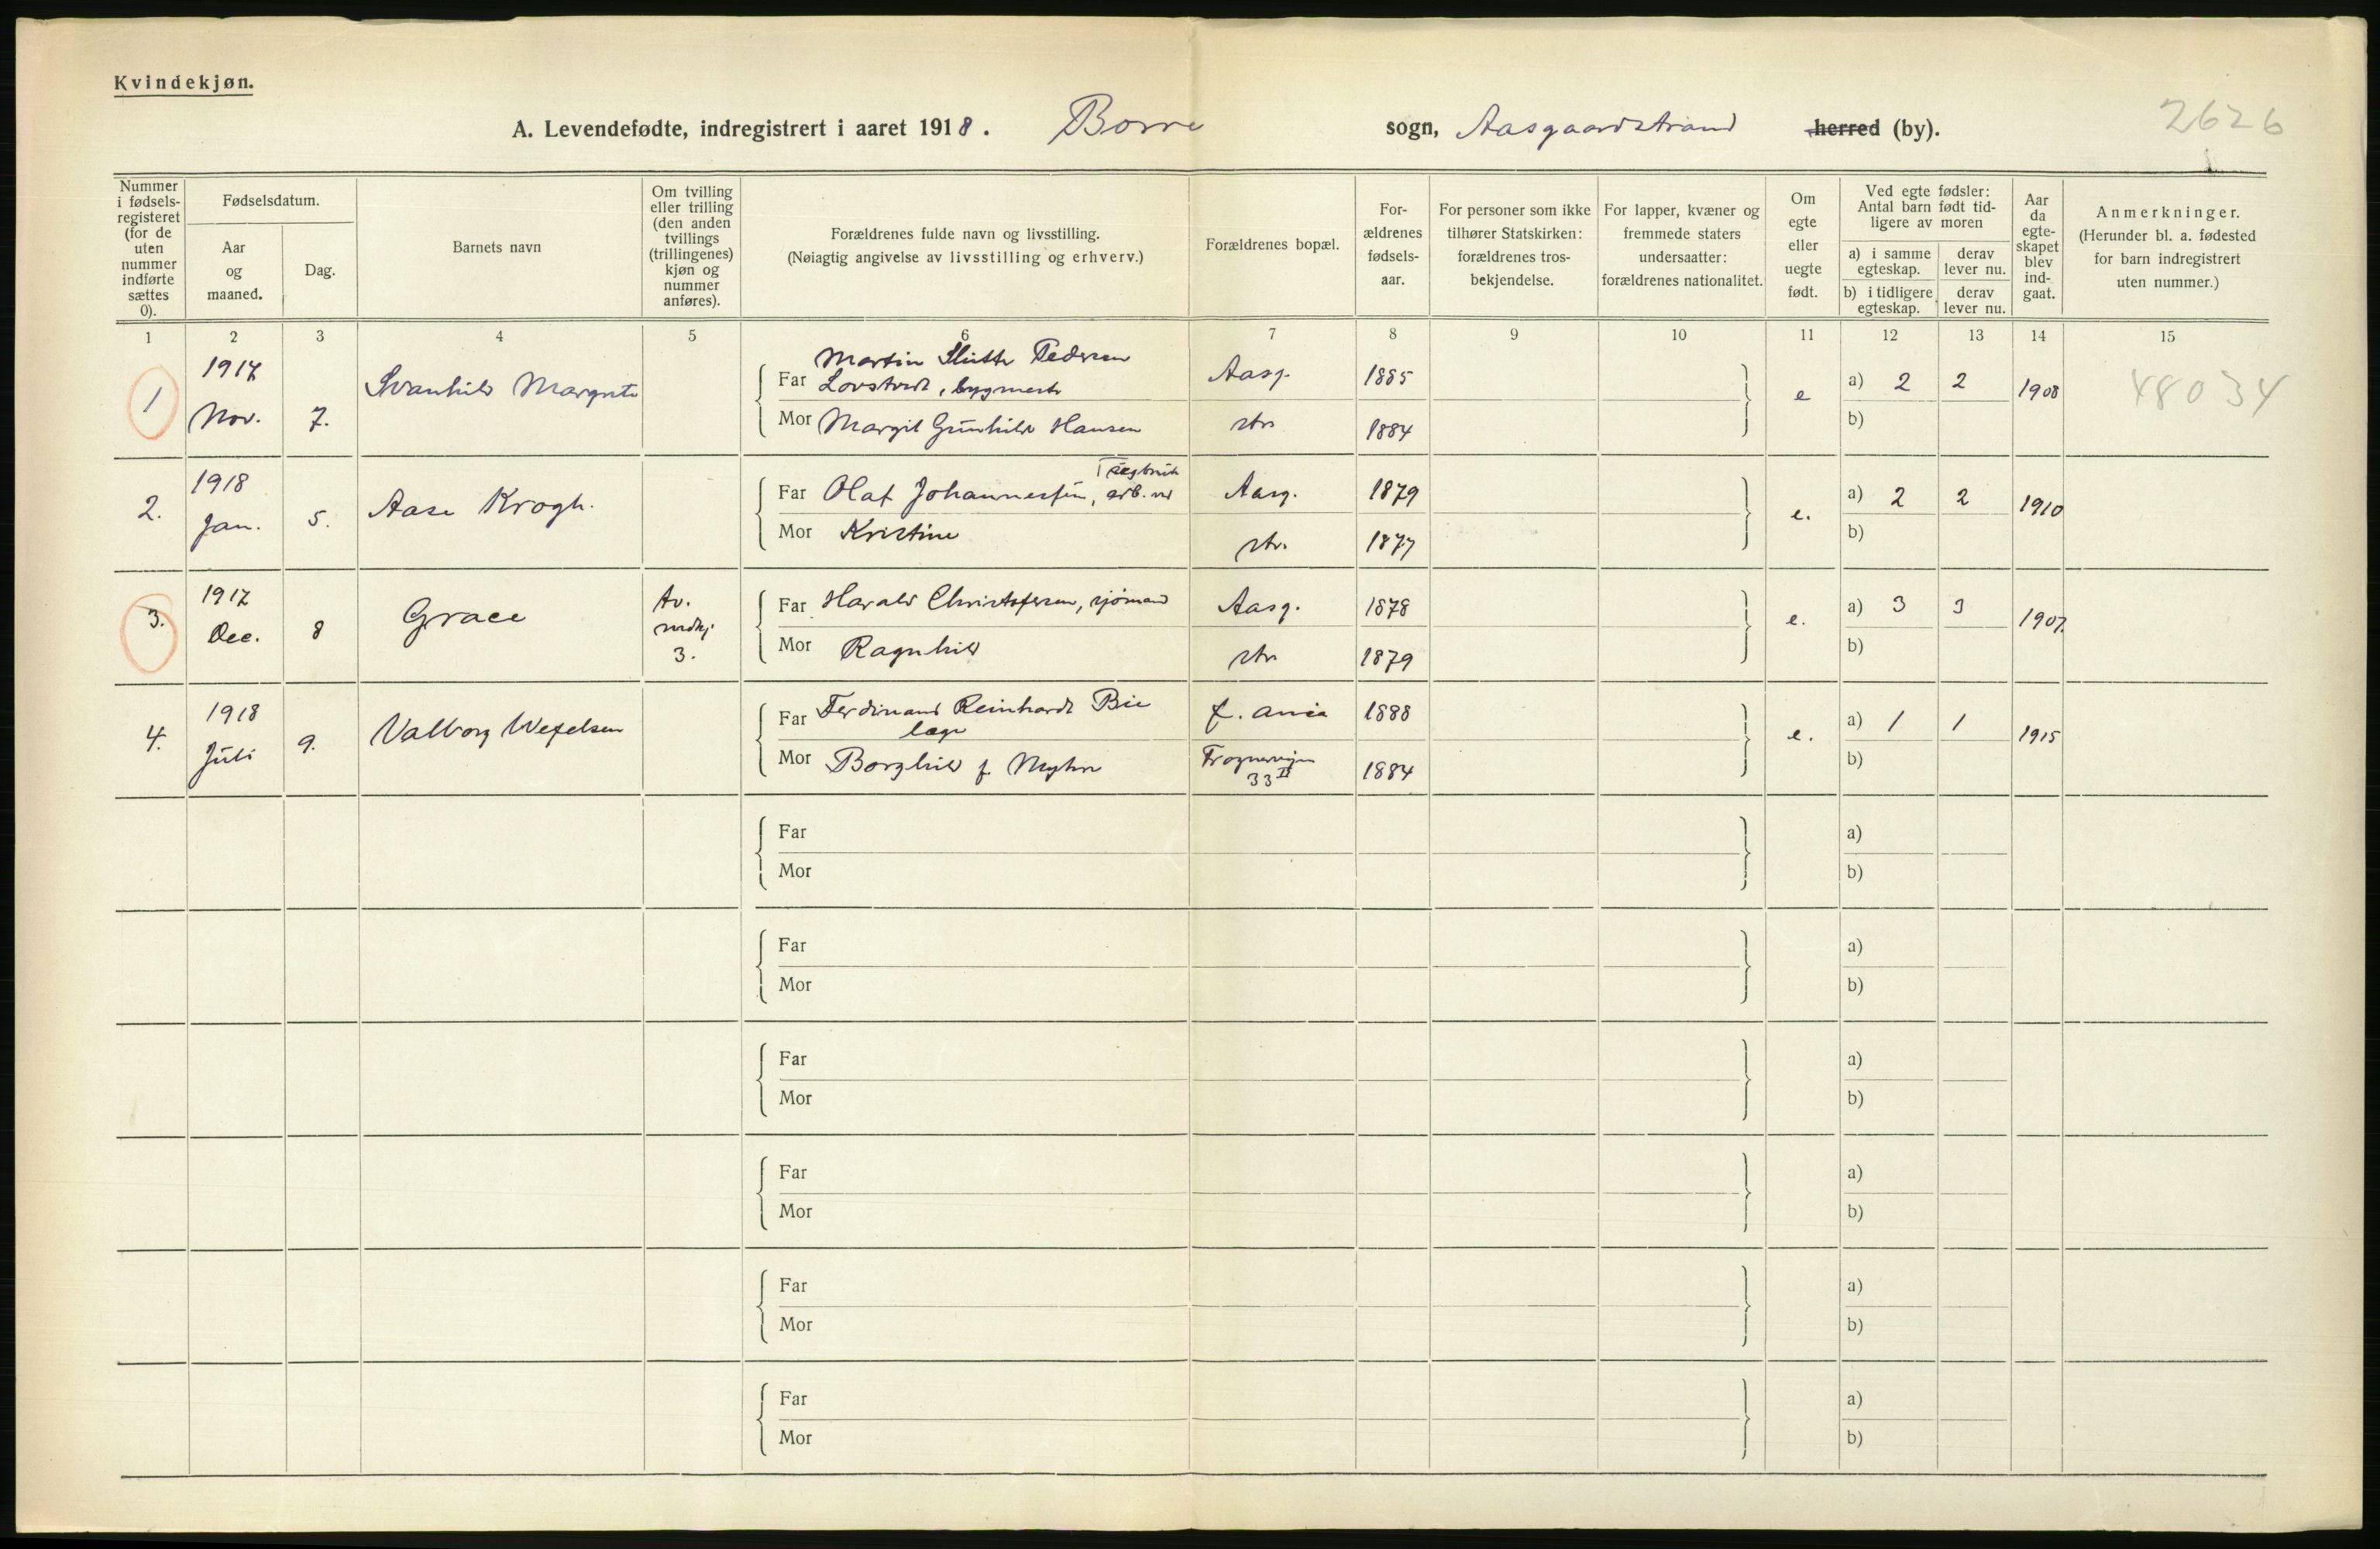 Kvindekjøn.
A. Levendefødte, indregistrert i aaret 1918. Borre sogn, Aasgaardstrand herred (by). 2626
Nummer i fødsels-registeret (for de uten nummer indførte sættes 0).
Fødselsdatum.
Aar og maaned.
Dag.
Barnets navn
Om tvilling eller trilling (den anden tvillings (trillingenes) kjøn og nummer anføres).
Forældrenes fulde navn og livsstilling.
(Nøiagtig angivelse av livsstilling og erhverv.)
Forældrenes bopæl.
For-ældrenes fødsels-aar.
For personer som ikke tilhører Statskirken: forældrenes tros-bekjendelse.
For lapper, kvæner og fremmede staters undersaatter: forældrenes nationalitet.
Om egte eller uegte født.
Ved egte fødsler: Antal barn født tid-ligere av moren
a) i samme egteskap.
derav lever nu.
b) i tidligere egteskap.
derav lever nu.
Aar da egte-skapet blev ind-gaat.
Anmerkninger.
(Herunder bl. a. fødested for barn indregistrert uten nummer.)
1 2 3 4 5 6 7 8 9 10 11 12 13 14 15
1 1917 Nov. 7. Svanhild Margrete
Martin Pedersen
Far Lovstvedt, bygmestr Aasg. 1885 e a) 2 2 1908 48034
Mor Margit Gunhild Hansen str. 1884 b)
2. 1918 Jan. 5. Aase Krogh.
Far Olaf Johannessen, arb. ved Aasg. 1879 e. a) 2 2 1910
Mor Kristine str. 1877 b)
3. 1917 Dec. 8 Grace Tv. mdkj 3.
Far Harald Christofersen, sjømand Aasg. 1878 e. a) 3 3 1907
Mor Ragnhild str. 1879 b)
4. 1918 Juli 9. Valborg Wexelsen
Far Ferdinand Reinhardt Bie f. ania 1888 e. a) 1 1 1915
læge
Mor Borghild f. Myhre Frognerveien 33 II 1884 b)
Far a)
Mor b)
Far a)
Mor b)
Far a)
Mor b)
Far a)
Mor b)
Far a)
Mor b)
Far a)
Mor b)